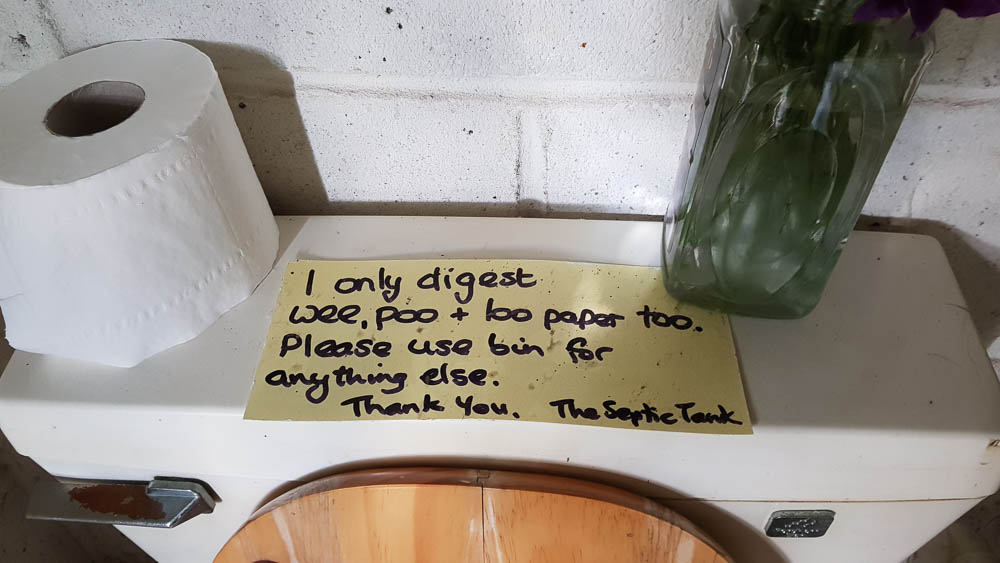 I only digest
wee, poo + loo paper too.
Please use bin for
anything else.
Thank You. The Septic Tank